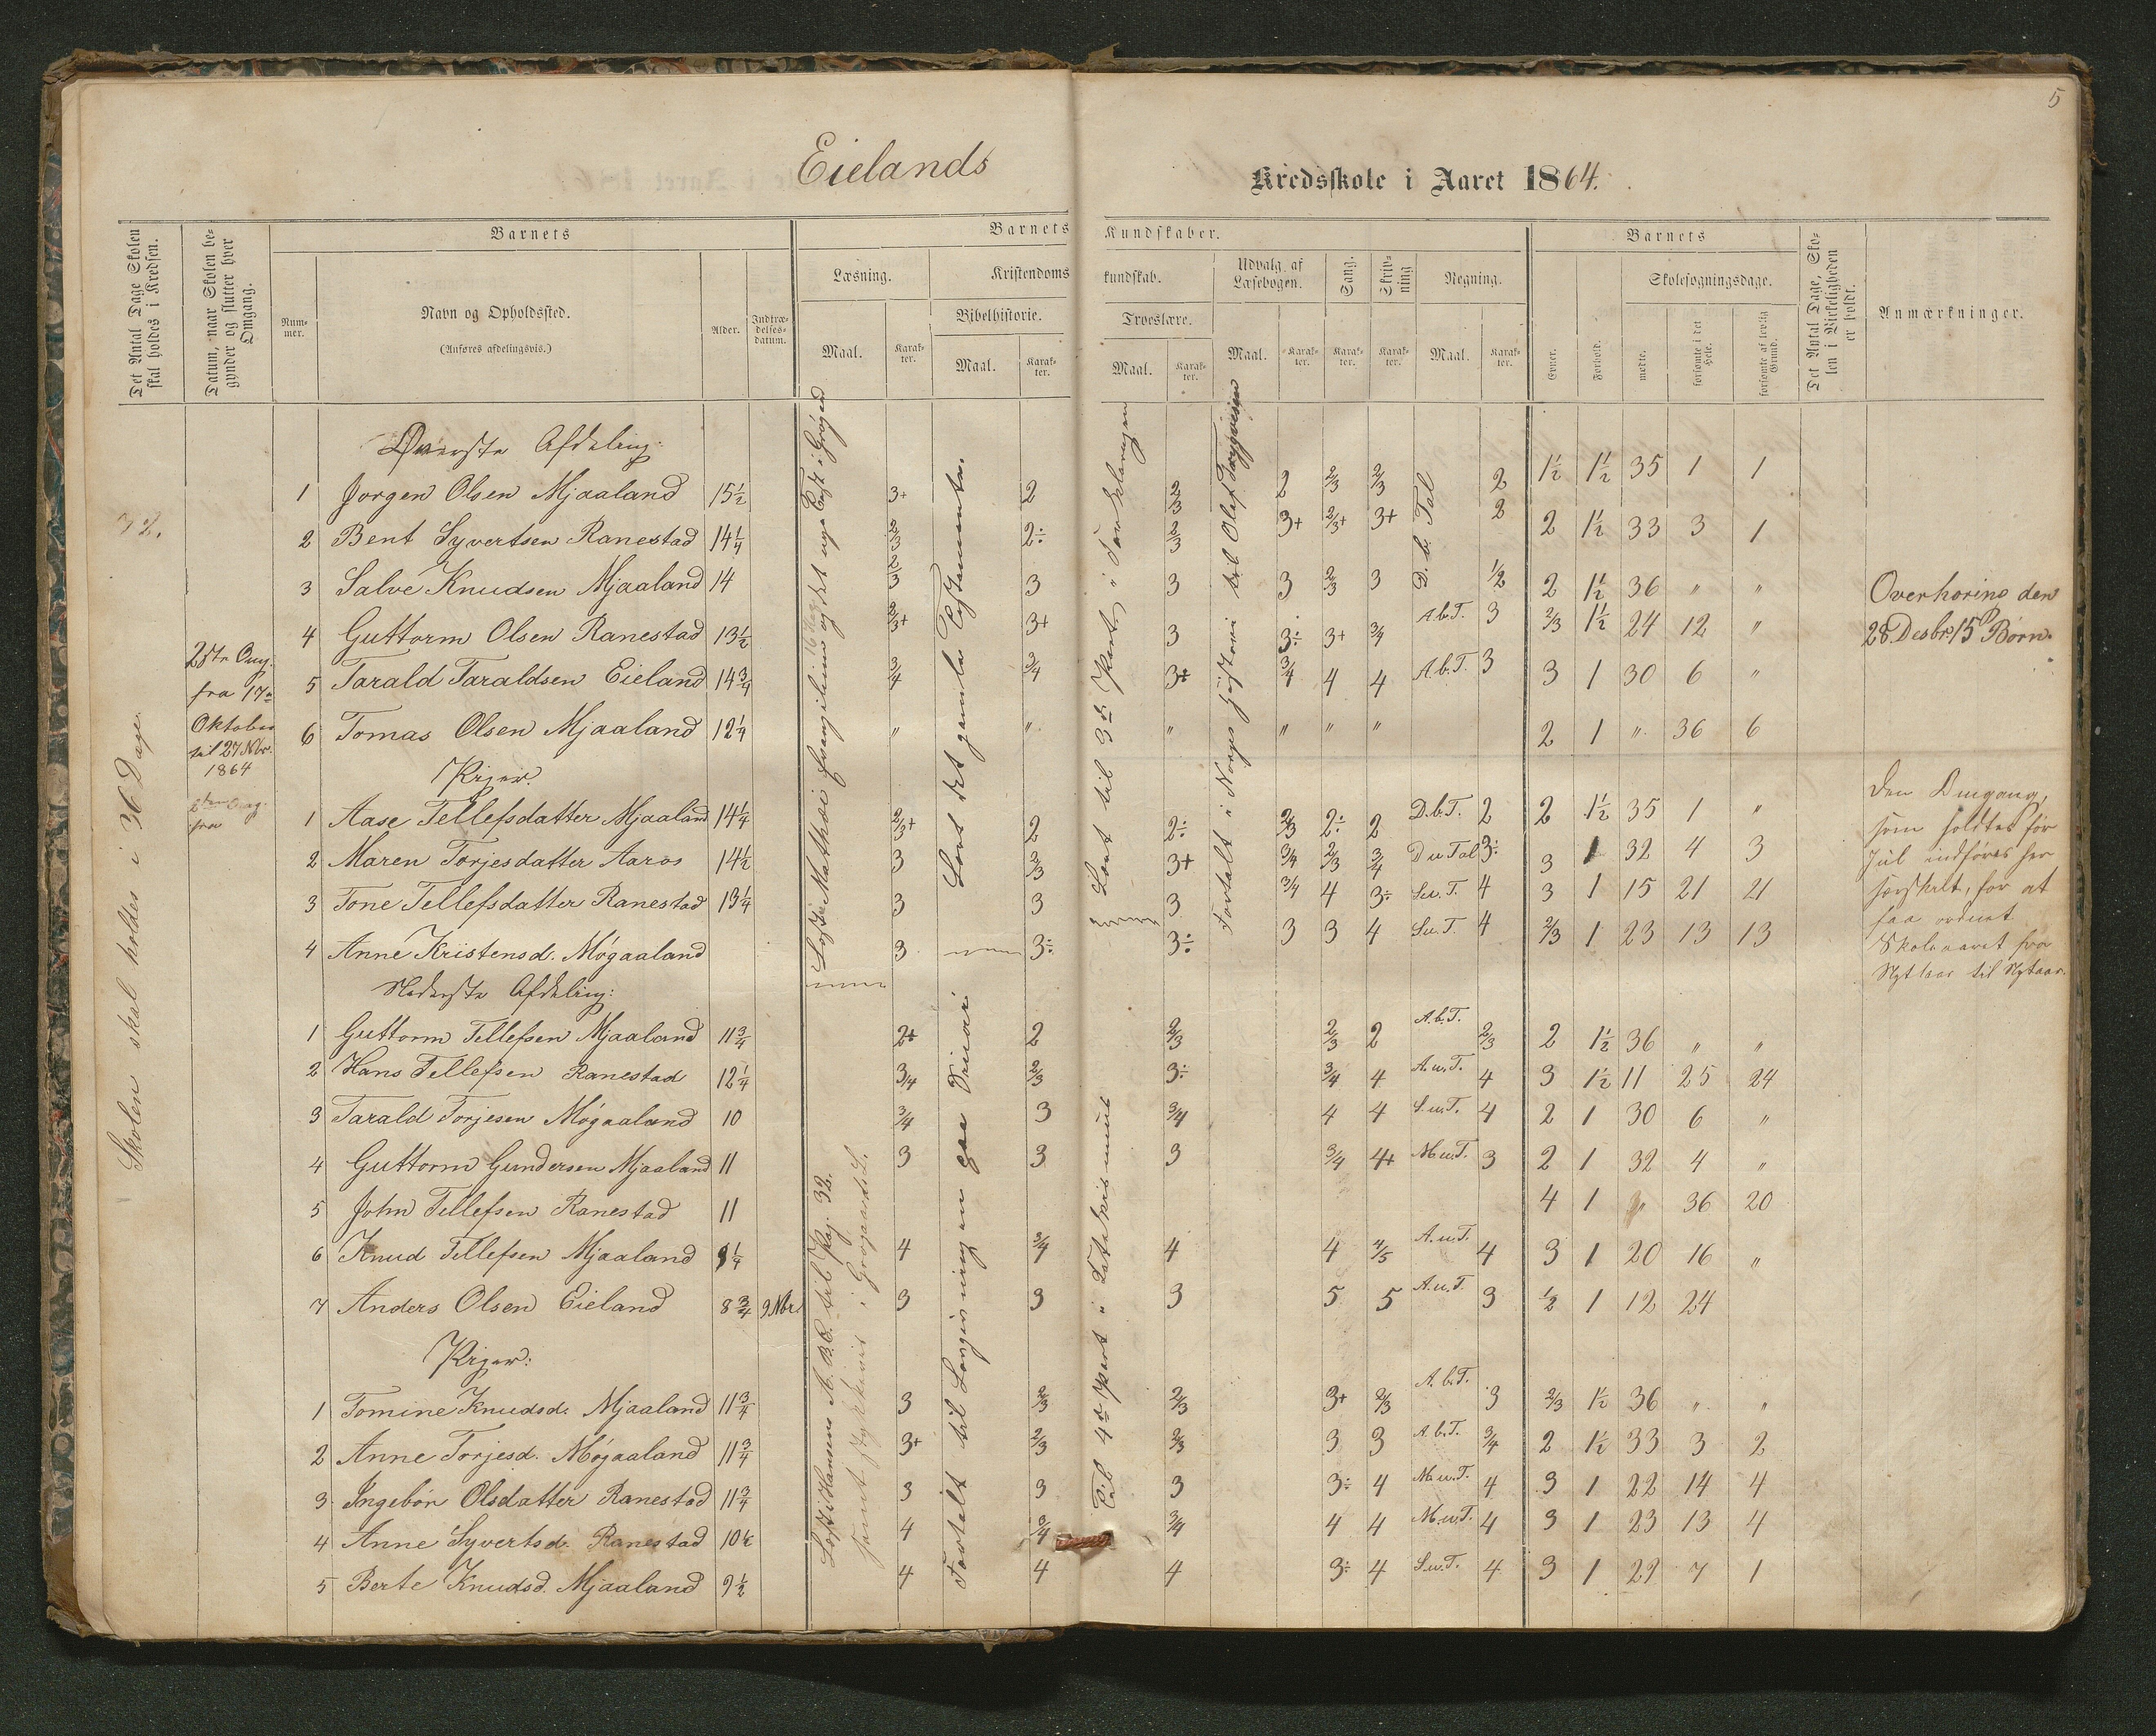 5
Eielands Kredsskole i Aaret 1864.
Det Antal Dage Skolen skal holdes i Kredsen.
Datum, naar Skolen begynder og slutter hver Omgang.
Barnets
Nummer.
Navn og Opholdssted.
(Anføres afdelingsvis.)
Alder.
Indtrædelsesdatum.
Barnets Kundskaber.
Læsning.
Maal.
Karakter.
Kristendomskundskab.
Bibelhistorie.
Maal.
Karakter.
Troeslære.
Maal.
Karakter.
Udvalg af Læsebogen.
Maal.
Karakter.
Sang.
Karakter.
Skrivning
Karakter.
Regning.
Maal.
Karakter.
Barnets
Evner.
Forhold.
Skolesøgningsdage.
mødte.
forsømte i det Hele.
forsømte af lovlig Grund.
Det Antal Dage, Skolen i Virkeligheden er holdt.
Anmærkninger.
Skolen skal holdes i 36 Dage.
2den Omg.
fra 17de
Oktober
til 27 Nbr.
1864
Øverste Afdeling:
1 Jorgen Olsen Mjaaland 15½ 3+ 2 2/3 2 2/3 2/3 2 1½ 1½ 35 1 1
2 Bent Syvertsen Ranestad 14¼ 2/3 2÷ 2/3 3+ 2/3+ 3+ 2 2 1½ 33 3 1
3 Salve Knudsen Mjaaland 14 2/3 3 3 3 2/3 3 1/2 2 1½ 36 " "
4 Guttorm Olsen Ranestad 13½ 2/3+ 3+ 3 3÷ 3+ 3/4 A.b.T. 3 2/3 1½ 24 12 "
5 Tarald Taraldsen Eieland 14¾ 3/4 3/4 3+ 3/4 4 4 A.b.T. 3 3 1 30 6 "
6 Tomas Olsen Mjaaland 12¼ " " " " " " 2 1 " 36 6
Piger:
1 Aase Tellefsdatter Mjaaland 14¼ 2/3+ 2 2÷ 2/3 2÷ 2 D.b.T. 2 2 1½ 35 1 "
2 Maren Torjesdatter Aaros 14½ 3 2/3 3+ 3/4 2/3 3/4 D u Tal 3÷ 3 1 32 4 3
3 Tone Tellefsdatter Ranestad 13¼ 3 3 3 3/4 4 3÷ S.u.T. 4 3 1 15 21 21
4 Anne Kristensd. Møgaaland 3 3÷ 3÷ 3 3 4 S.u.T. 4 2/3 1 23 13 13
Nederste Afdeling:
1 Guttorm Tellefsen Mjaaland 11¾ 2+ 2 2/3 2/3 2 A.b.T. 2/3 2 1½ 36 " "
2 Hans Tellefsen Ranestad 12¼ 3/4 2/3 3÷ 3/4 4 A.u.T. 4 3 1½ 11 25 24
3 Tarald Torjesen Møgaaland 10 3/4 3 3/4 4 4 S.u.T. 4 2 1 30 6 "
4 Guttorm Gundersen Mjaaland 11 3 3 3 3/4 4+ M.u.T. 3 2 1 32 4 "
5 John Tellefsen Ranestad 11 4 1 " 36 20
6 Knud Tellefsen Mjaaland 9¼ 4 3/4 4 4 4/5 A.u.T. 4 3 1 20 16 "
7 Anders Olsen Eieland 8¾ 9 Nbr. 3 3 3 5 5 A.u.T. 3 1/2 1 12 24
Piger:
1 Tomine Knudsd. Mjaaland 11¾ 3 2/3 2/3 3+ 2/3 A.b.T. 3 2/3 1½ 36 " "
2 Anne Torjesd. Møgaaland 11¾ 3+ 2/3 2/3 3 3 A.b.T. 3/4 2 1½ 33 3 2
3 Ingebør Olsdatter Ranestad 11¾ 3 3 3 3÷ 4 M.u.T. 4 3 1 22 14 4
4 Anne Syvertsd. Ranestad 10½ 4 3/4 3/4 4 4 M.u.T. 4 3 1 23 13 4
5 Berte Knudsd. Mjaaland 9½ 4 4 4 3÷ 4 S.u.T. 4 3 1 29 7 1
Lært det gamle Testamente.
Lært til 3die Part i Forklaringen
Fortalt i Norges Historie til Olaf Trygvesøn
D. b. Tal
Læst i Hansens A.B.C. til Pag. 32.
Fortalt til Lovgivningen paa Sinai
Til 4de Part i Katekismus
Overhøring den
28 Desbr. 15 Børn.
Den Omgang,
som holdtes før
Jul indføres her
særskilt, for at
faa ordnet
Skoleaaret fra
Nytaar til Nytaar.